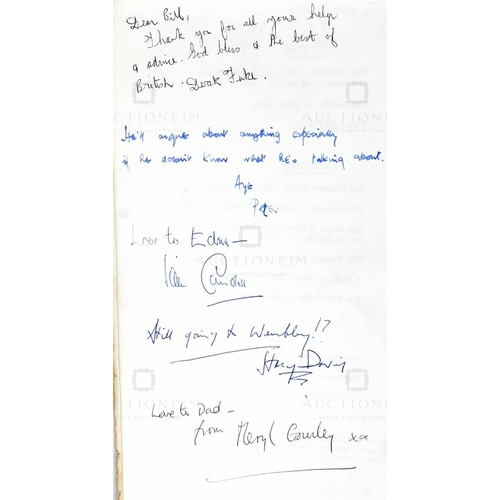 Dear Bill,
Thank you for all your help
& advice. God bless & the best of
British. Derek
He'll argue about anything especially
if he doesn't know what he's talking about.
Aye
Peter
Love to Edna –
Still going to Wembley!?
Love to Dad –
from Meryl Gourley xx
AUCTIONEUM
AUCTIONEUM
AUCTIONEUM